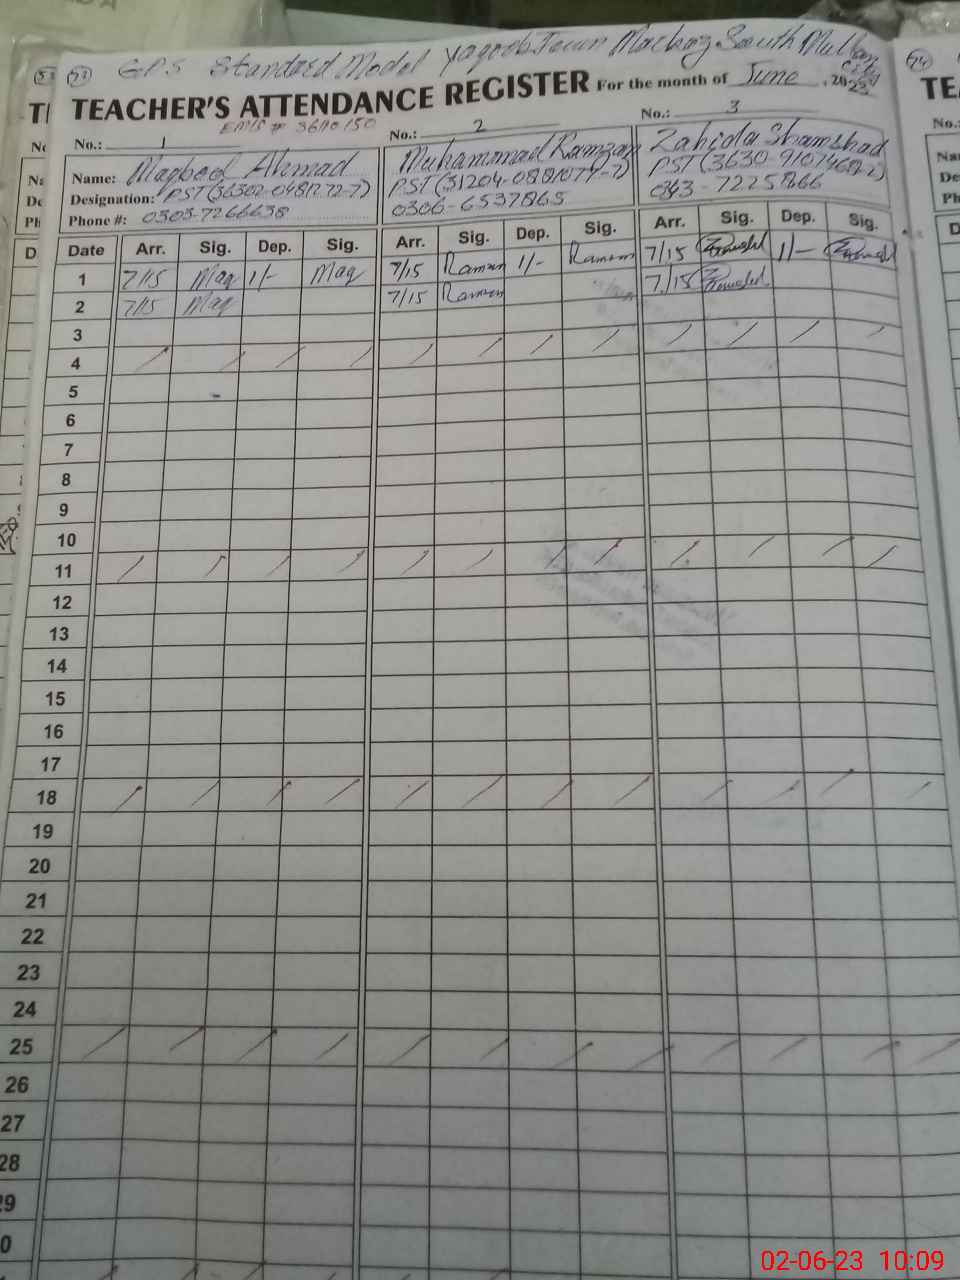 53 73 G.P.S Standard Model Yaqoob Town Markaz South Multan City 74
TEACHER'S ATTENDANCE REGISTER For the month of June, 2023
EMIS # 36110150
No.: 1 No.: 2 No.: 3
Name: Maqbool Ahmad Muhammad Ramzan Zahida Shamshad
Designation: PST (36302-0481272-7) PST (31204-0881074-7) PST (3630-9107468-2)
Phone #: 0303-7266638 0306-6537865 0343-7225866
Date Arr. Sig. Dep. Sig. Arr. Sig. Dep. Sig. Arr. Sig. Dep. Sig.
1 7/15 Maq 1/- Maq 7/15 Ramzan 1/- Ramzan 7/15 1/-
2 7/15 Maq 7/15 Ramzan 7/15
3
4 / / / / / / / / / / / /
5
6
7
8
9
10
11 / / / / / / / / / / / /
12
13
14
15
16
17
18 / / / / / / / / / / / /
19
20
21
22
23
24
25 / / / / / / / / / / / /
26
27
28
29
30
02-06-23 10:09